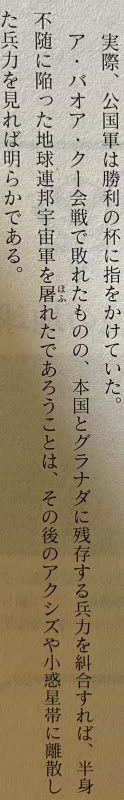 実際、公国軍は勝利の杯に指をかけていた。
ア・バオア・クー会戦で敗れたものの、本国とグラナダに残存する兵力を糾合すれば、半身
不随に陥った地球連邦宇宙軍を屠れたであろうことは、その後のアクシズや小惑星帯に離散し
た兵力を見れば明らかである。
ほふ